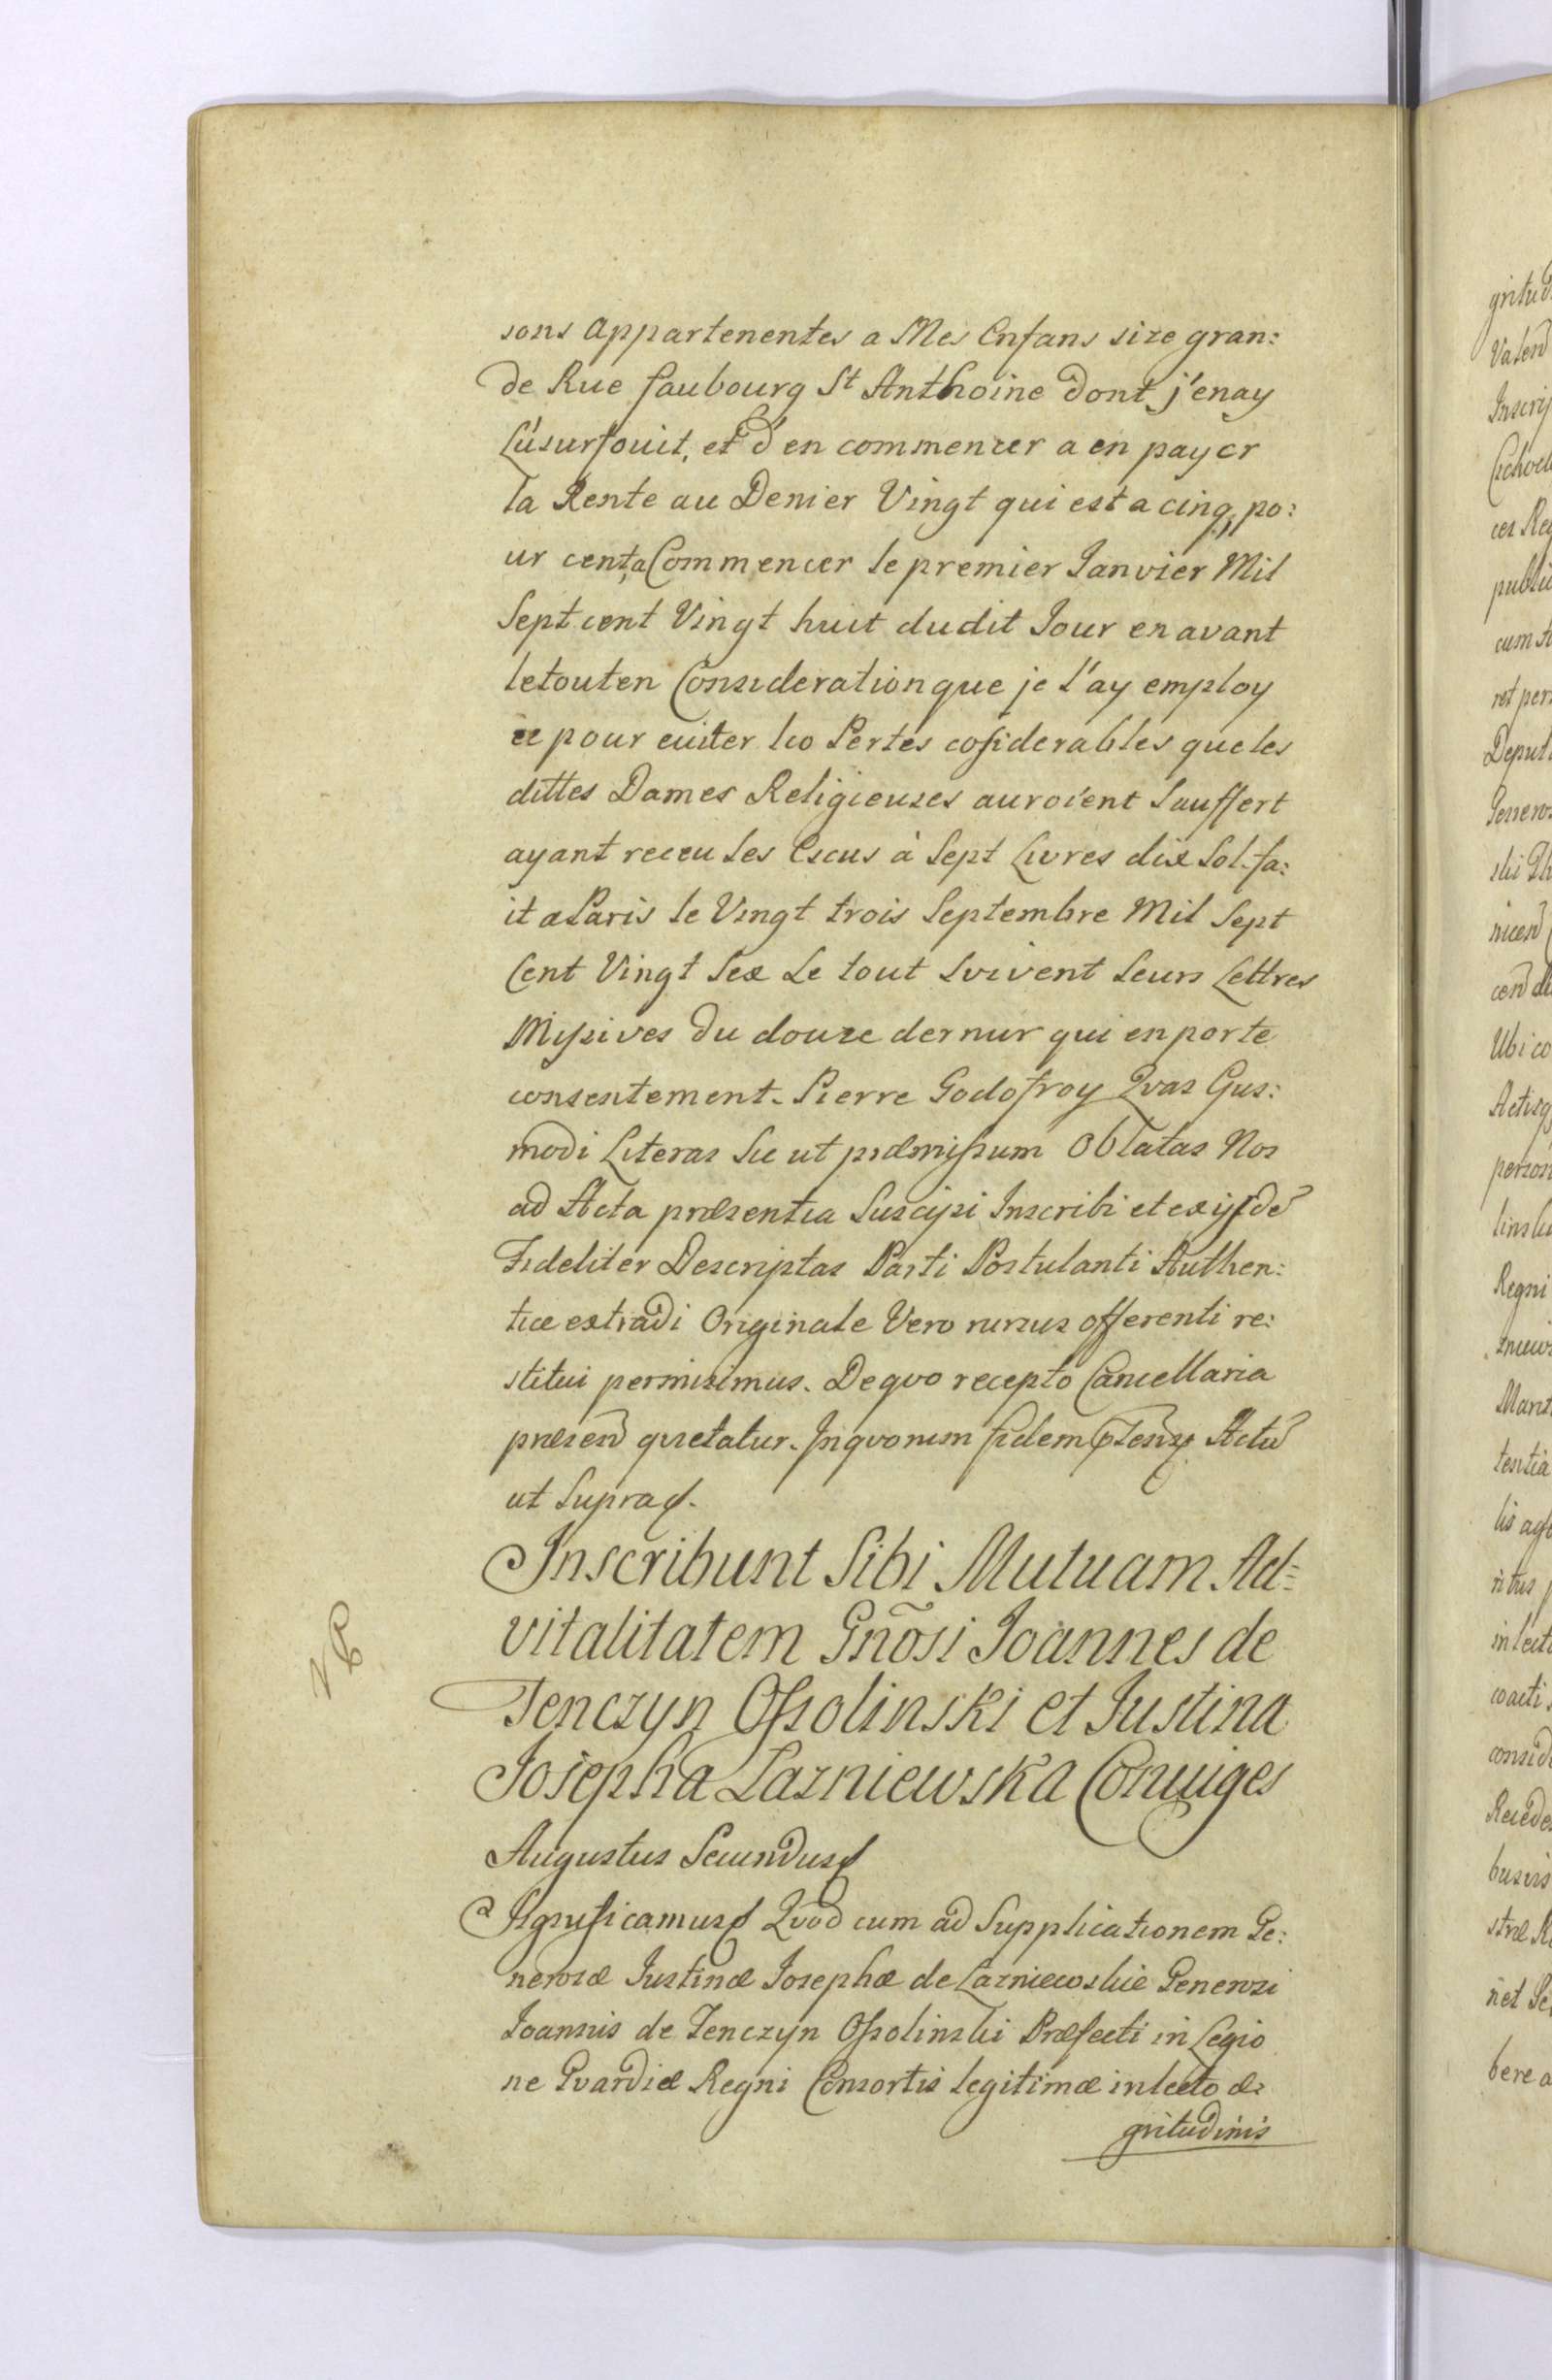 sons appartenentes a Mes Enfans size gran:
de Rue faubourg St Anthoine dont j'enay
L'usurfouit, et d'en commencer a en payer
la Rente au Denier Vingt qui est a cinq po:
ur cent, a Commencer le premier Janvier Mil
Sept cent Vingt huit dudit Jour en avant
letouten Consideration que je l'ay employ
ee pour euiter les Pertes cosiderables que les
dittes Dames Religieuses auroient Sauffert
ayant receu les Escus à Sept Livres dix Sol. fa:
it a Paris le Vingt trois Septembre Mil Sept
Cent Vingt Sex Le tout Suivent Leurs Lettres
Missives du douze dernur qui en porte
consentement. Pierre Godofroy Qvas Gus:
modi Literas Sic ut præmissum Oblatas Nos
ad Acta præsentia Suscipi Inscribi et ex ijsdē
Fideliter Descriptas Parti Postulanti Authen:
tice extradi Originale Vero rursus offerenti re:
stitui permisimus. De qvo recepto Cancellaria
præsen qvietatur. In qvorum fidem Actū
ut Supra
Inscribunt Sibi Mutuam Ad=
vitalitatem Gnõsi Joannes de
Tenczyn Ossolinski et Justina
Josepha Lazniewska Coniuges
Augustus Secundus
Significamus Qvod cum ad Supplicationem Ge:
nerosæ Justinæ Josephæ de Lazniewskie Generosi
Joannis de Tenczyn Ossolinski Præfecti in Legio
ne Gvardiæ Regni Consortis legitimæ in lecto æ:
gritudinis
gritud
Valend
publi
cum
Deputa
Ubi co
person
Regni
tentia
in lect
coacti
consid
Recede
bere a